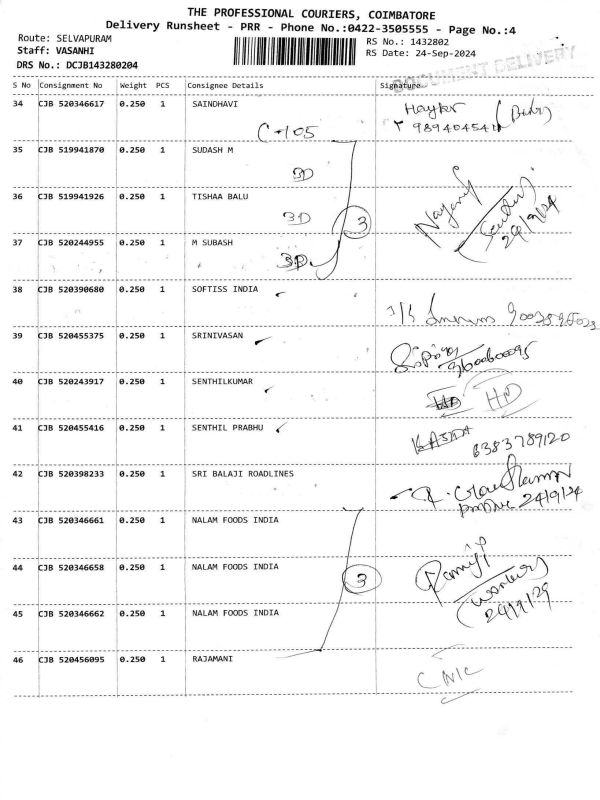 THE PROFESSIONAL COURIERS, COIMBATORE
Delivery Runsheet - PRR - Phone No.:0422-3505555 - Page No.:4
Route: SELVAPURAM
Staff: VASANHI
DRS No.: DCJB143280204
RS No.: 1432802
RS Date: 24-Sep-2024
DOCUMENT DELIVERY
S No Consignment No Weight PCS Consignee Details Signature
34 CJB 520346617 0.250 1 SAINDHAVI
C-105
35 CJB 519941870 0.250 1 SUDASH M
3D
36 CJB 519941926 0.250 1 TISHAA BALU
3D 3
24/9/24
37 CJB 520244955 0.250 1 M SUBASH
3D
38 CJB 520390680 0.250 1 SOFTISS INDIA
39 CJB 520455375 0.250 1 SRINIVASAN
40 CJB 520243917 0.250 1 SENTHILKUMAR
HD HD
41 CJB 520455416 0.250 1 SENTHIL PRABHU
6383789120
42 CJB 520398233 0.250 1 SRI BALAJI ROADLINES
24/9/24
43 CJB 520346661 0.250 1 NALAM FOODS INDIA
44 CJB 520346658 0.250 1 NALAM FOODS INDIA
3
45 CJB 520346662 0.250 1 NALAM FOODS INDIA
46 CJB 520456095 0.250 1 RAJAMANI